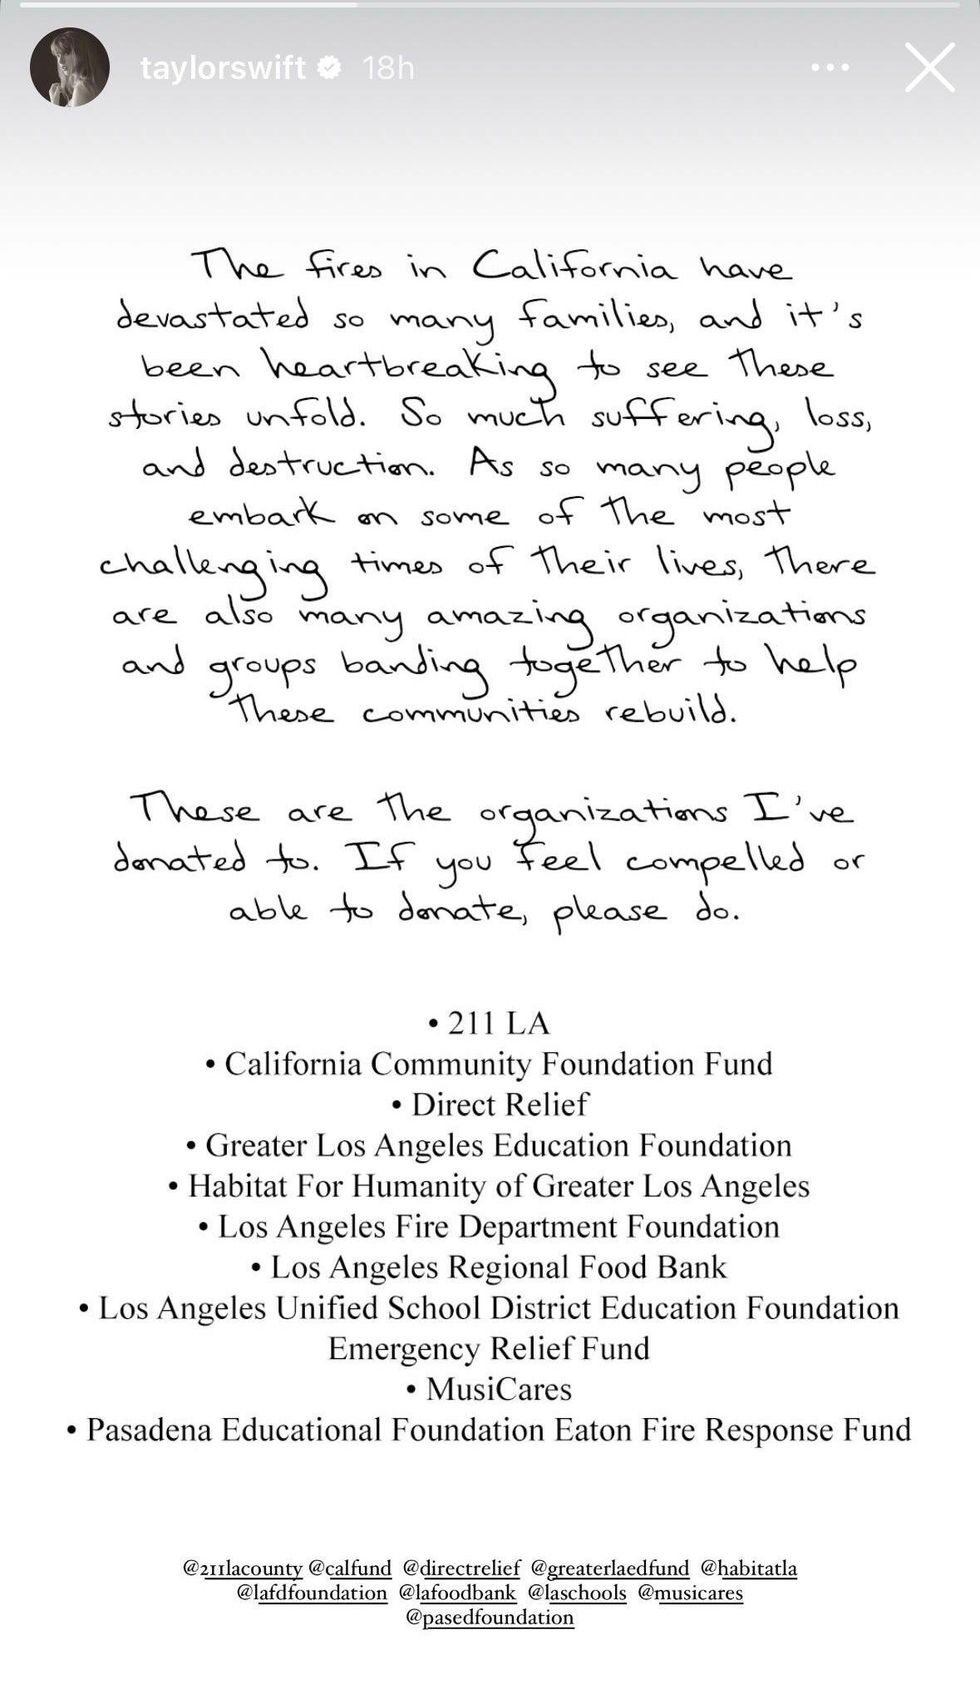 taylorswift 18h
The fires in California have
devastated so many families, and it's
been heartbreaking to see these
stories unfold. So much suffering, loss,
and destruction. As so many people
embark on some of the most
challenging times of their lives, there
are also many amazing organizations
and groups banding together to help
these communities rebuild.
These are the organizations I've
donated to. If you feel compelled or
able to donate, please do.
• 211 LA
• California Community Foundation Fund
• Direct Relief
• Greater Los Angeles Education Foundation
• Habitat For Humanity of Greater Los Angeles
• Los Angeles Fire Department Foundation
• Los Angeles Regional Food Bank
• Los Angeles Unified School District Education Foundation
Emergency Relief Fund
• MusiCares
• Pasadena Educational Foundation Eaton Fire Response Fund
@211lacounty @calfund @directrelief @greaterlaedfund @habitatla
@lafdfoundation @lafoodbank @laschools @musicares
@pasedfoundation